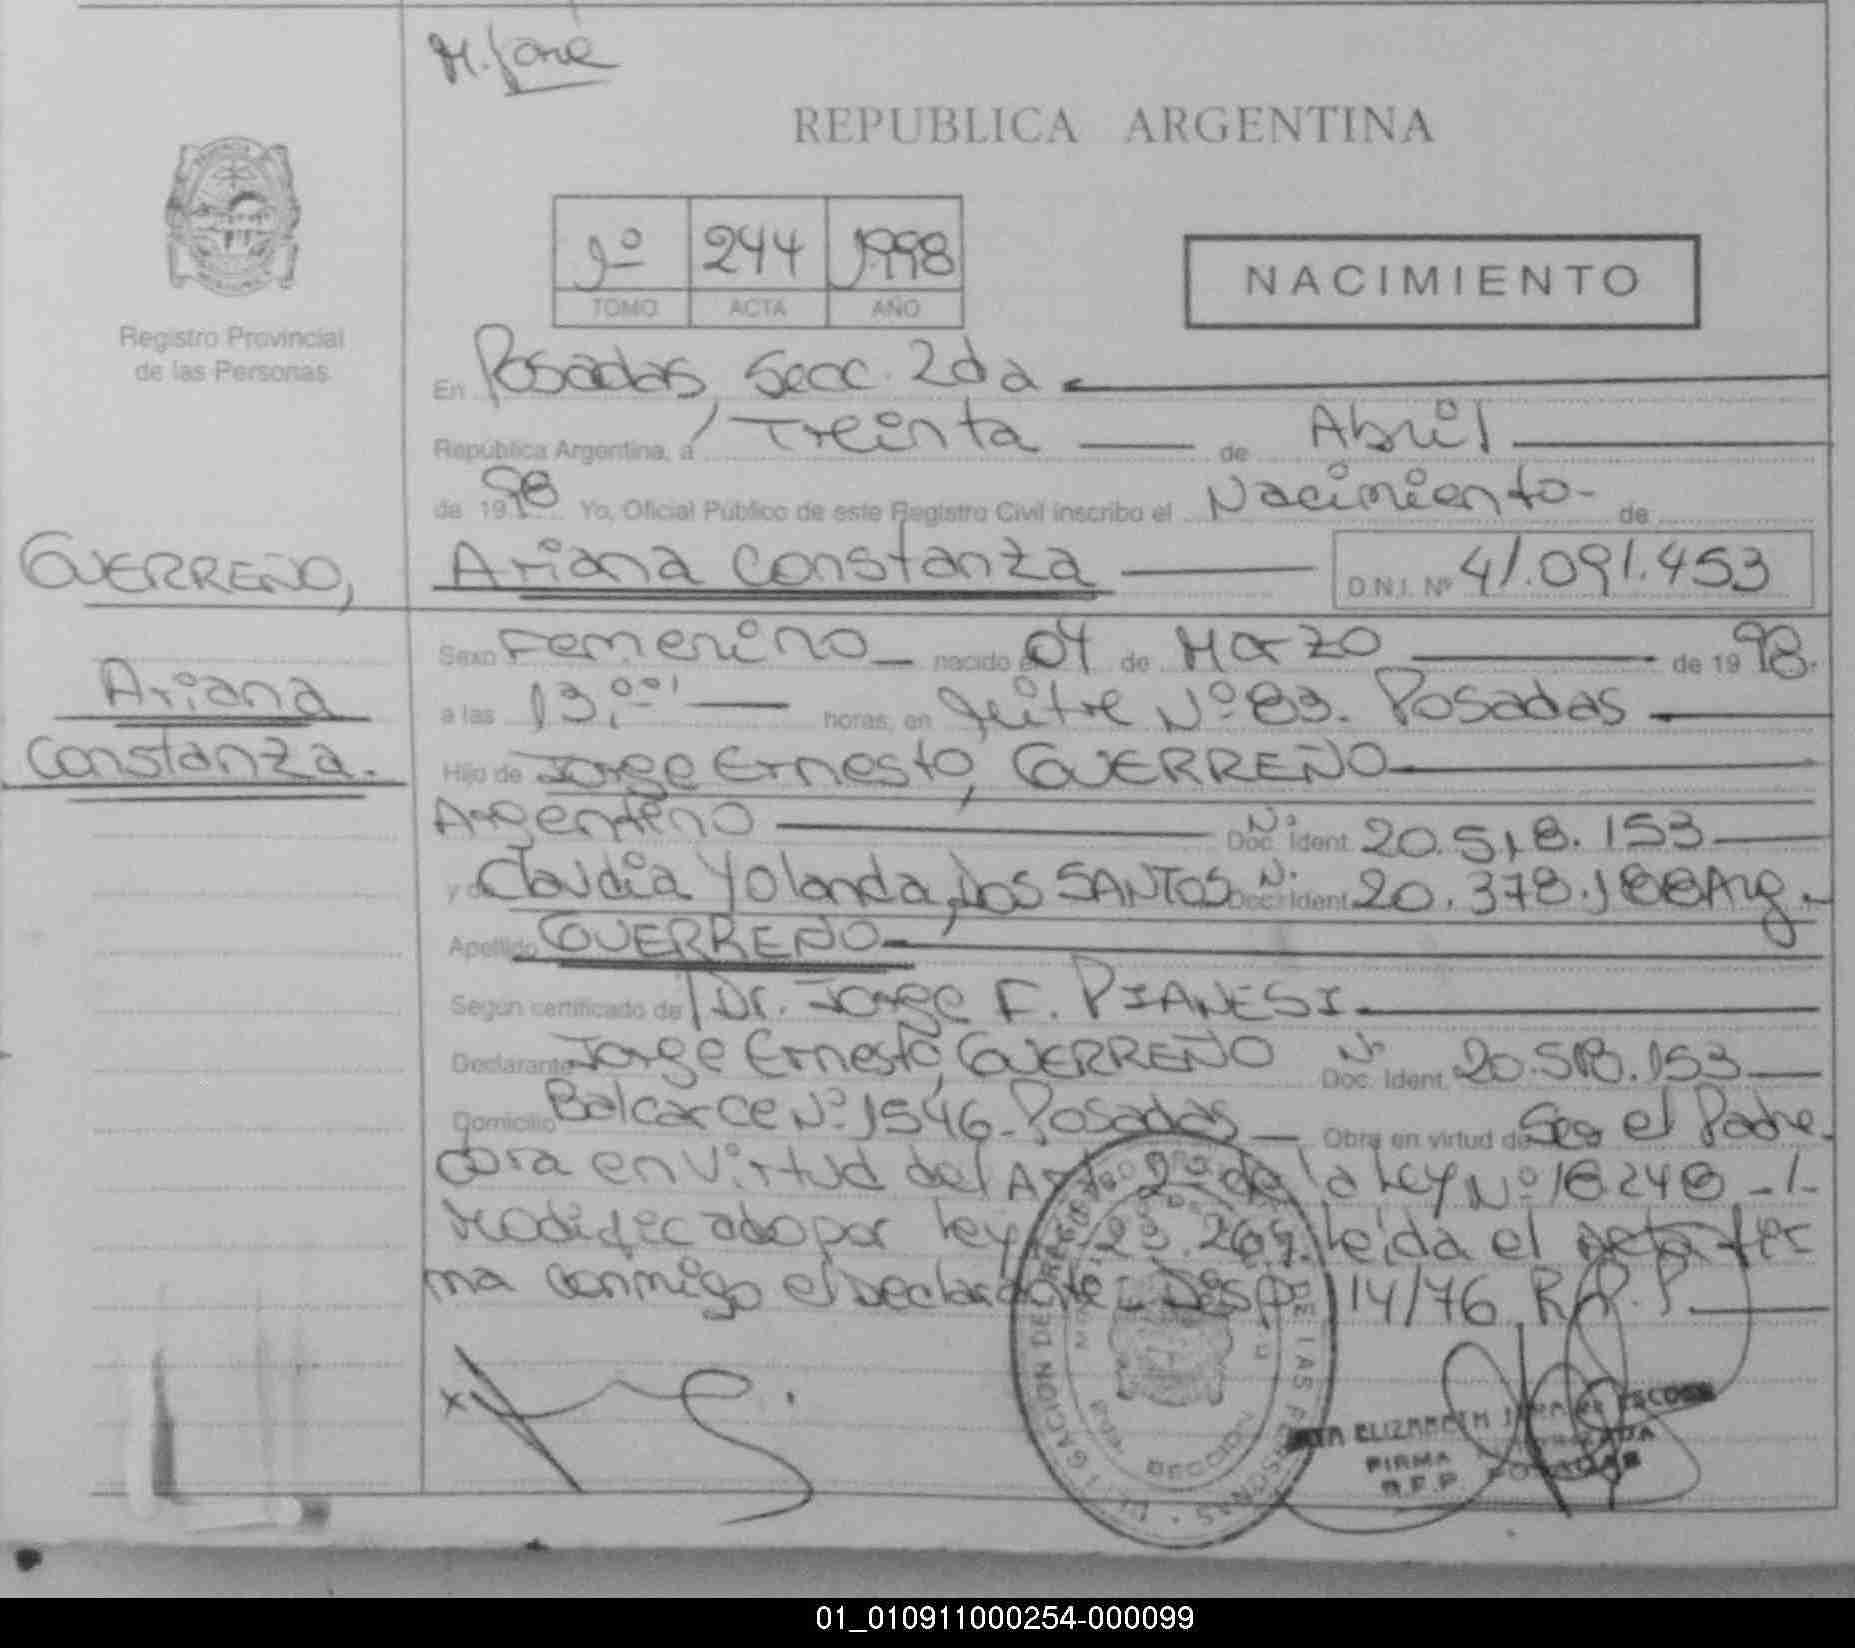 M. José
REPUBLICA ARGENTINA
1º 244 1998
TOMO ACTA AÑO
NACIMIENTO
Registro Provincial
de las Personas
En Posadas, Secc. 2da
República Argentina, a Treinta de Abril
de 1998 Yo, Oficial Público de este Registro Civil inscribo el Nacimiento de
GUERREÑO,
Ariana
Constanza.
Ariana Constanza D.N.I. Nº 41.091.453
Sexo Femenino nacido el 04 de Marzo de 1998.
a las 13,00' horas, en Mitre Nº 83. Posadas
Hijo de Jorge Ernesto, GUERREÑO
Argentino Nº Doc. Ident. 20.518.153
y de Claudia Yolanda, Dos SANTOS Nº Doc. Ident. 20.378.188 Arg.
Apellido GUERREÑO
Según certificado de Dr. Jorge F. PIANESI.
Declarante Jorge Ernesto, GUERREÑO Nº Doc. Ident. 20.518.153
Domicilio Balcarce Nº 1546 - Posadas Obra en virtud de Ser el Padre.
Obra en Virtud del Art. 2º de la Ley Nº 18.248 -/-
Modificado por Ley 23.264. Leída el acta fir
ma conmigo el Declarante - Disp. 14/76 R.P.P.
DELEGACION DEL REGISTRO DE LAS PERSONAS
SECCION
ELIZABETH
FIRMA
R.P.P. POSADAS
01_010911000254-000099